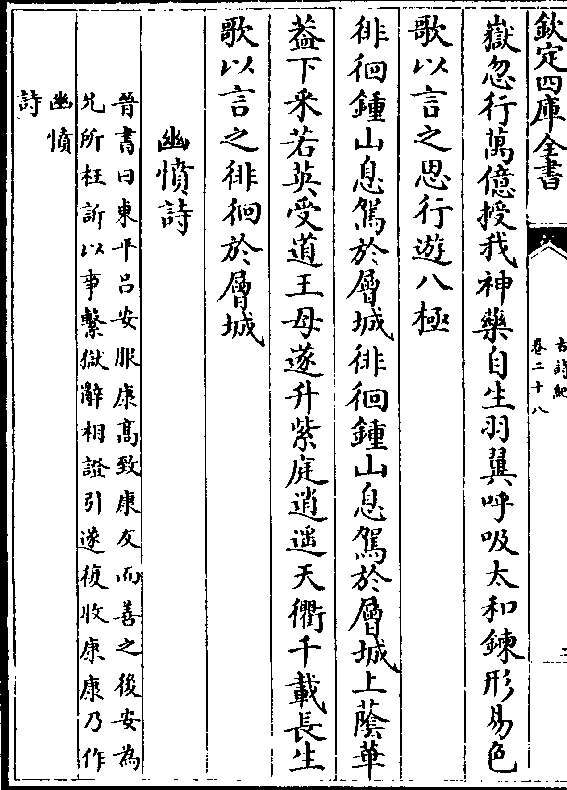 欽定四庫全書
古詩紀
卷二十八
嶽忽行萬億授我神藥自生羽翼呼吸太和鍊形易色
歌以言之思行遊八極
徘徊鍾山息駕於層城徘徊鍾山息駕於層城上蔭華
葢下采若英受道王母遂升紫庭逍遥天衢千載長生
歌以言之徘徊於層城
幽憤詩
晉書曰東平呂安服康高致康友而善之後安為
兄所枉訴以事繫獄辭相證引遂復收康康乃作
幽憤
詩